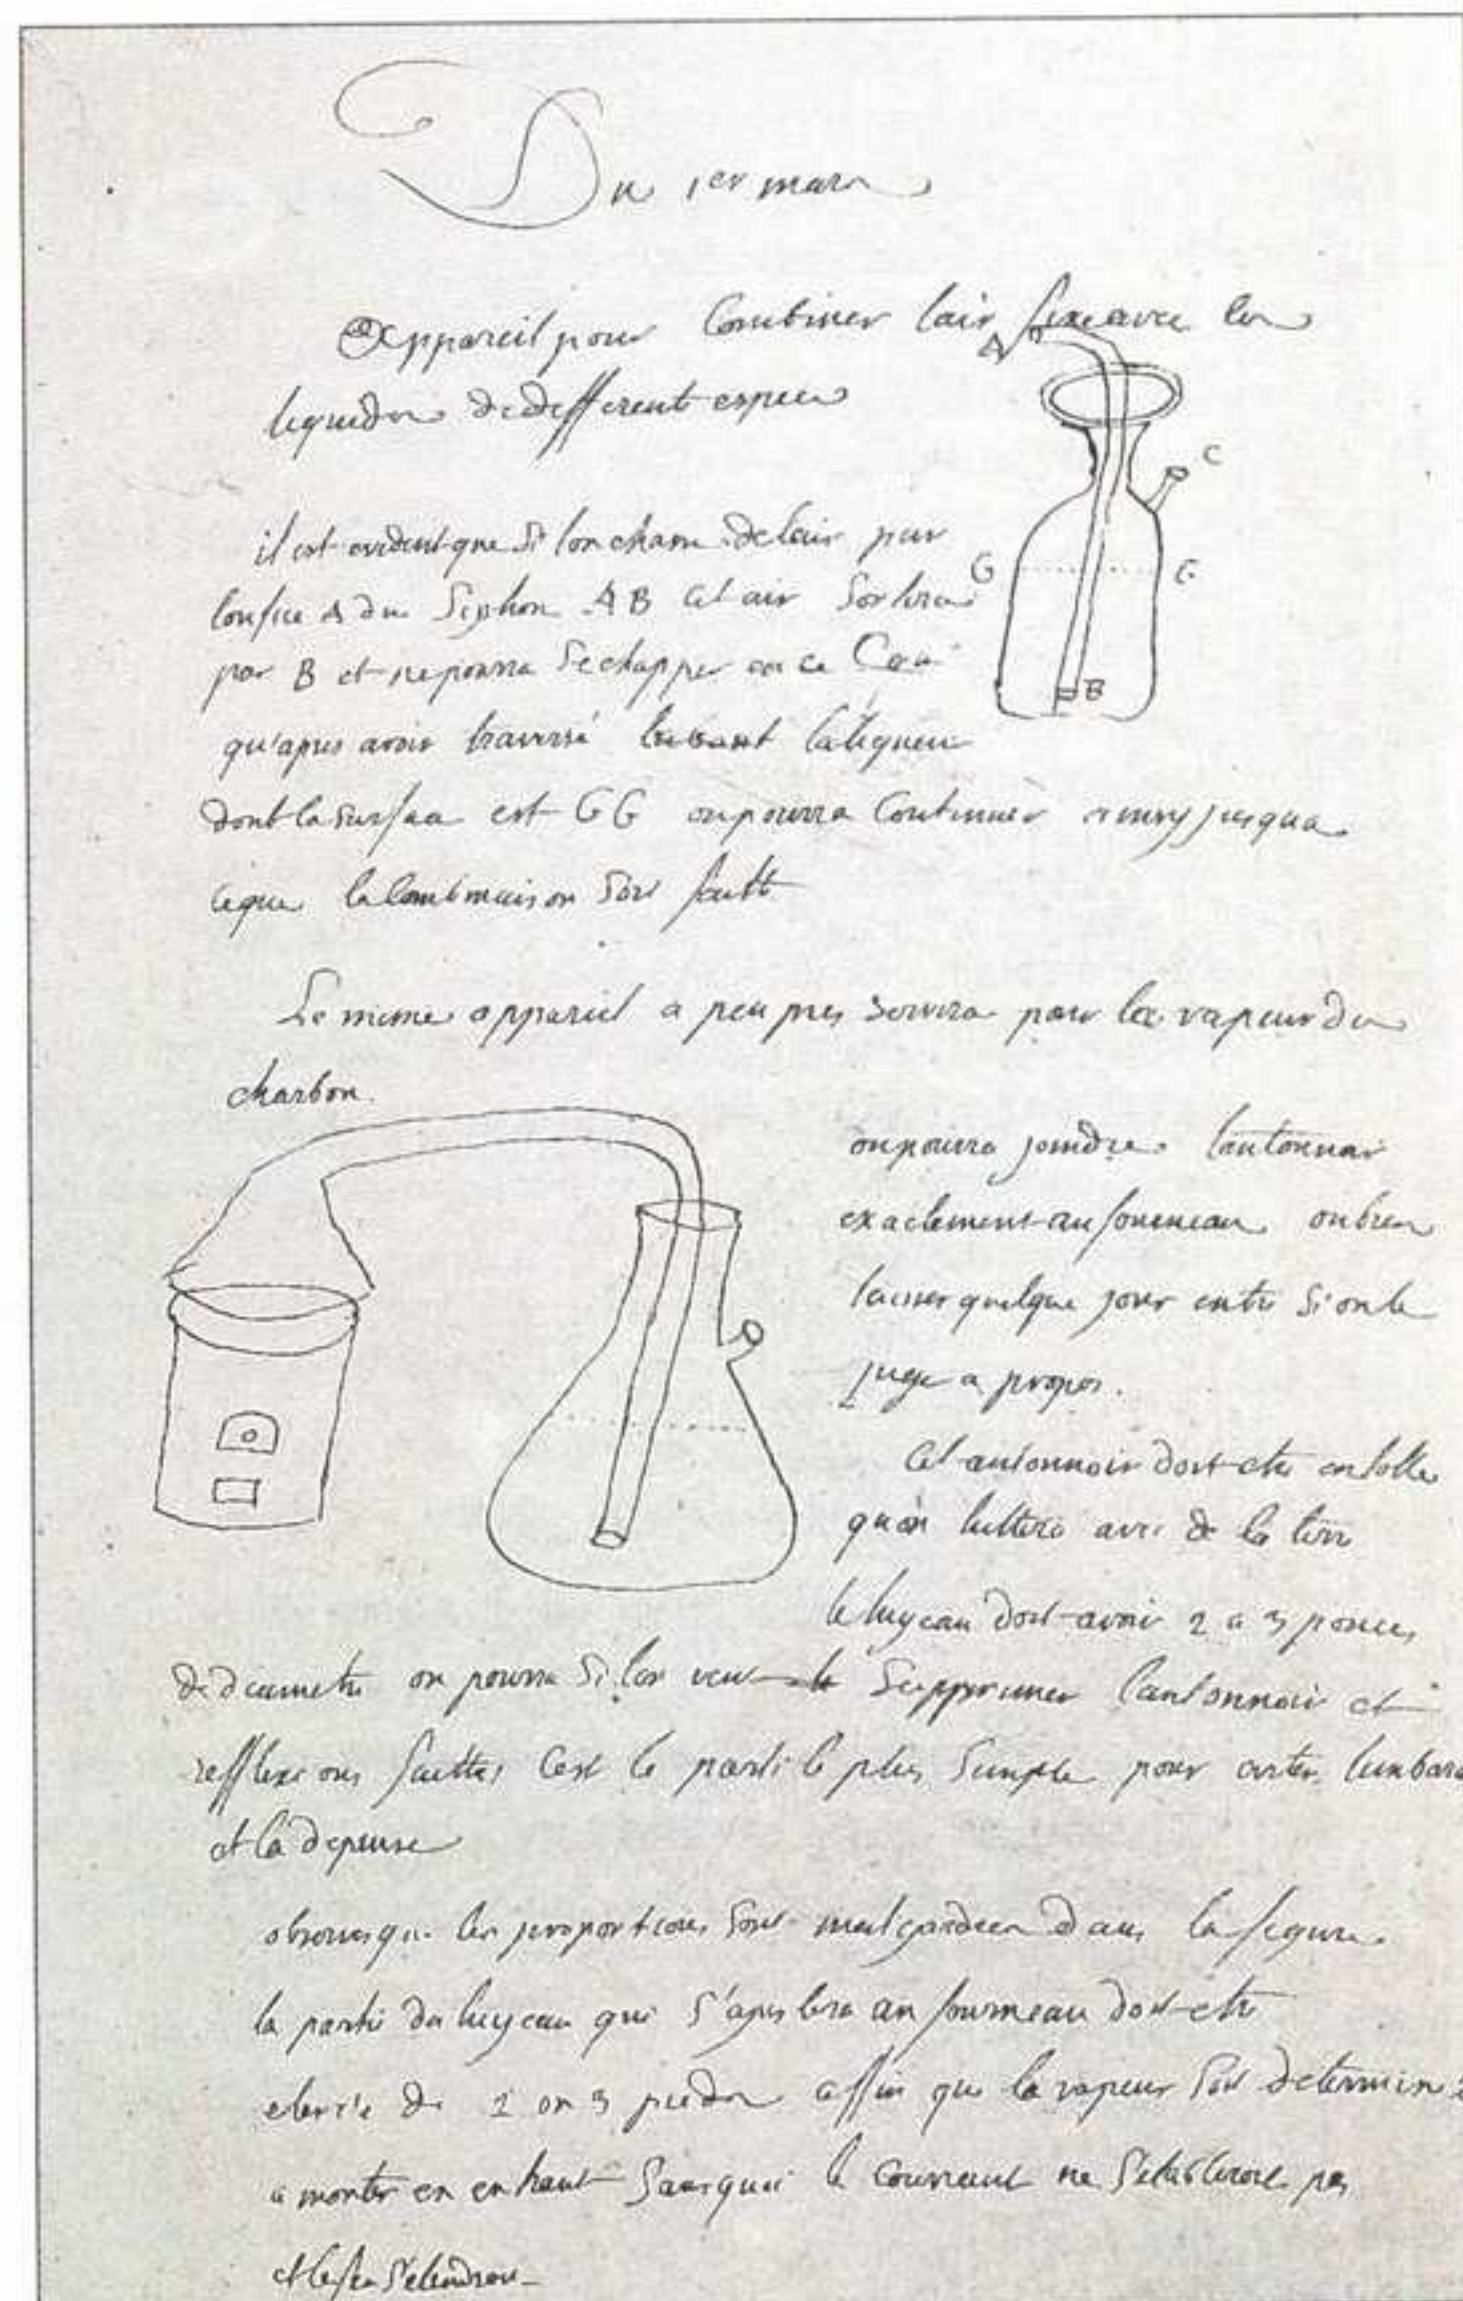 Du 1er mars
appareil pour Combiner lair fixe avec les
liquides de different especes
A
C
il est evident que si lon chasse de lair par
G G
lorifice A du Siphon AB Cet air Sortira
par B et ne pourra Sechapper en C
B
qu'apres avoir traversé la liqueur
dont la surface est GG on pourra Continuer ainsy jusqua
ceque la Combinaison Soit faitte
Le meme appareil a peu pres servira pour la vapeur du
charbon.
on pourra joindre lantonnoir
exactement au fourneau ou bien
laisser quelque jour entre Si on le
juge a propos.
Cet antonnoir doit etre en tolle
qu'on luttera avec de la terre
le tuyeau doit avoir 2 a 3 pouces
de diametre on pourra Si lon veut Supprimer lantonnoir et
refflexions faittes Cest le parti le plus Simple pour eviter lembara
et la depense
observes que les proportions Sont mal gardees dans la figure
la partie du tuyeau qui S'ajustera au fourneau doit etre
elevée de 2 ou 3 pieds affin que la vapeur Soit determiné
a monter en en haut Sans quoi le Courrant ne Setabliroit pas
et le feu Seteindroit